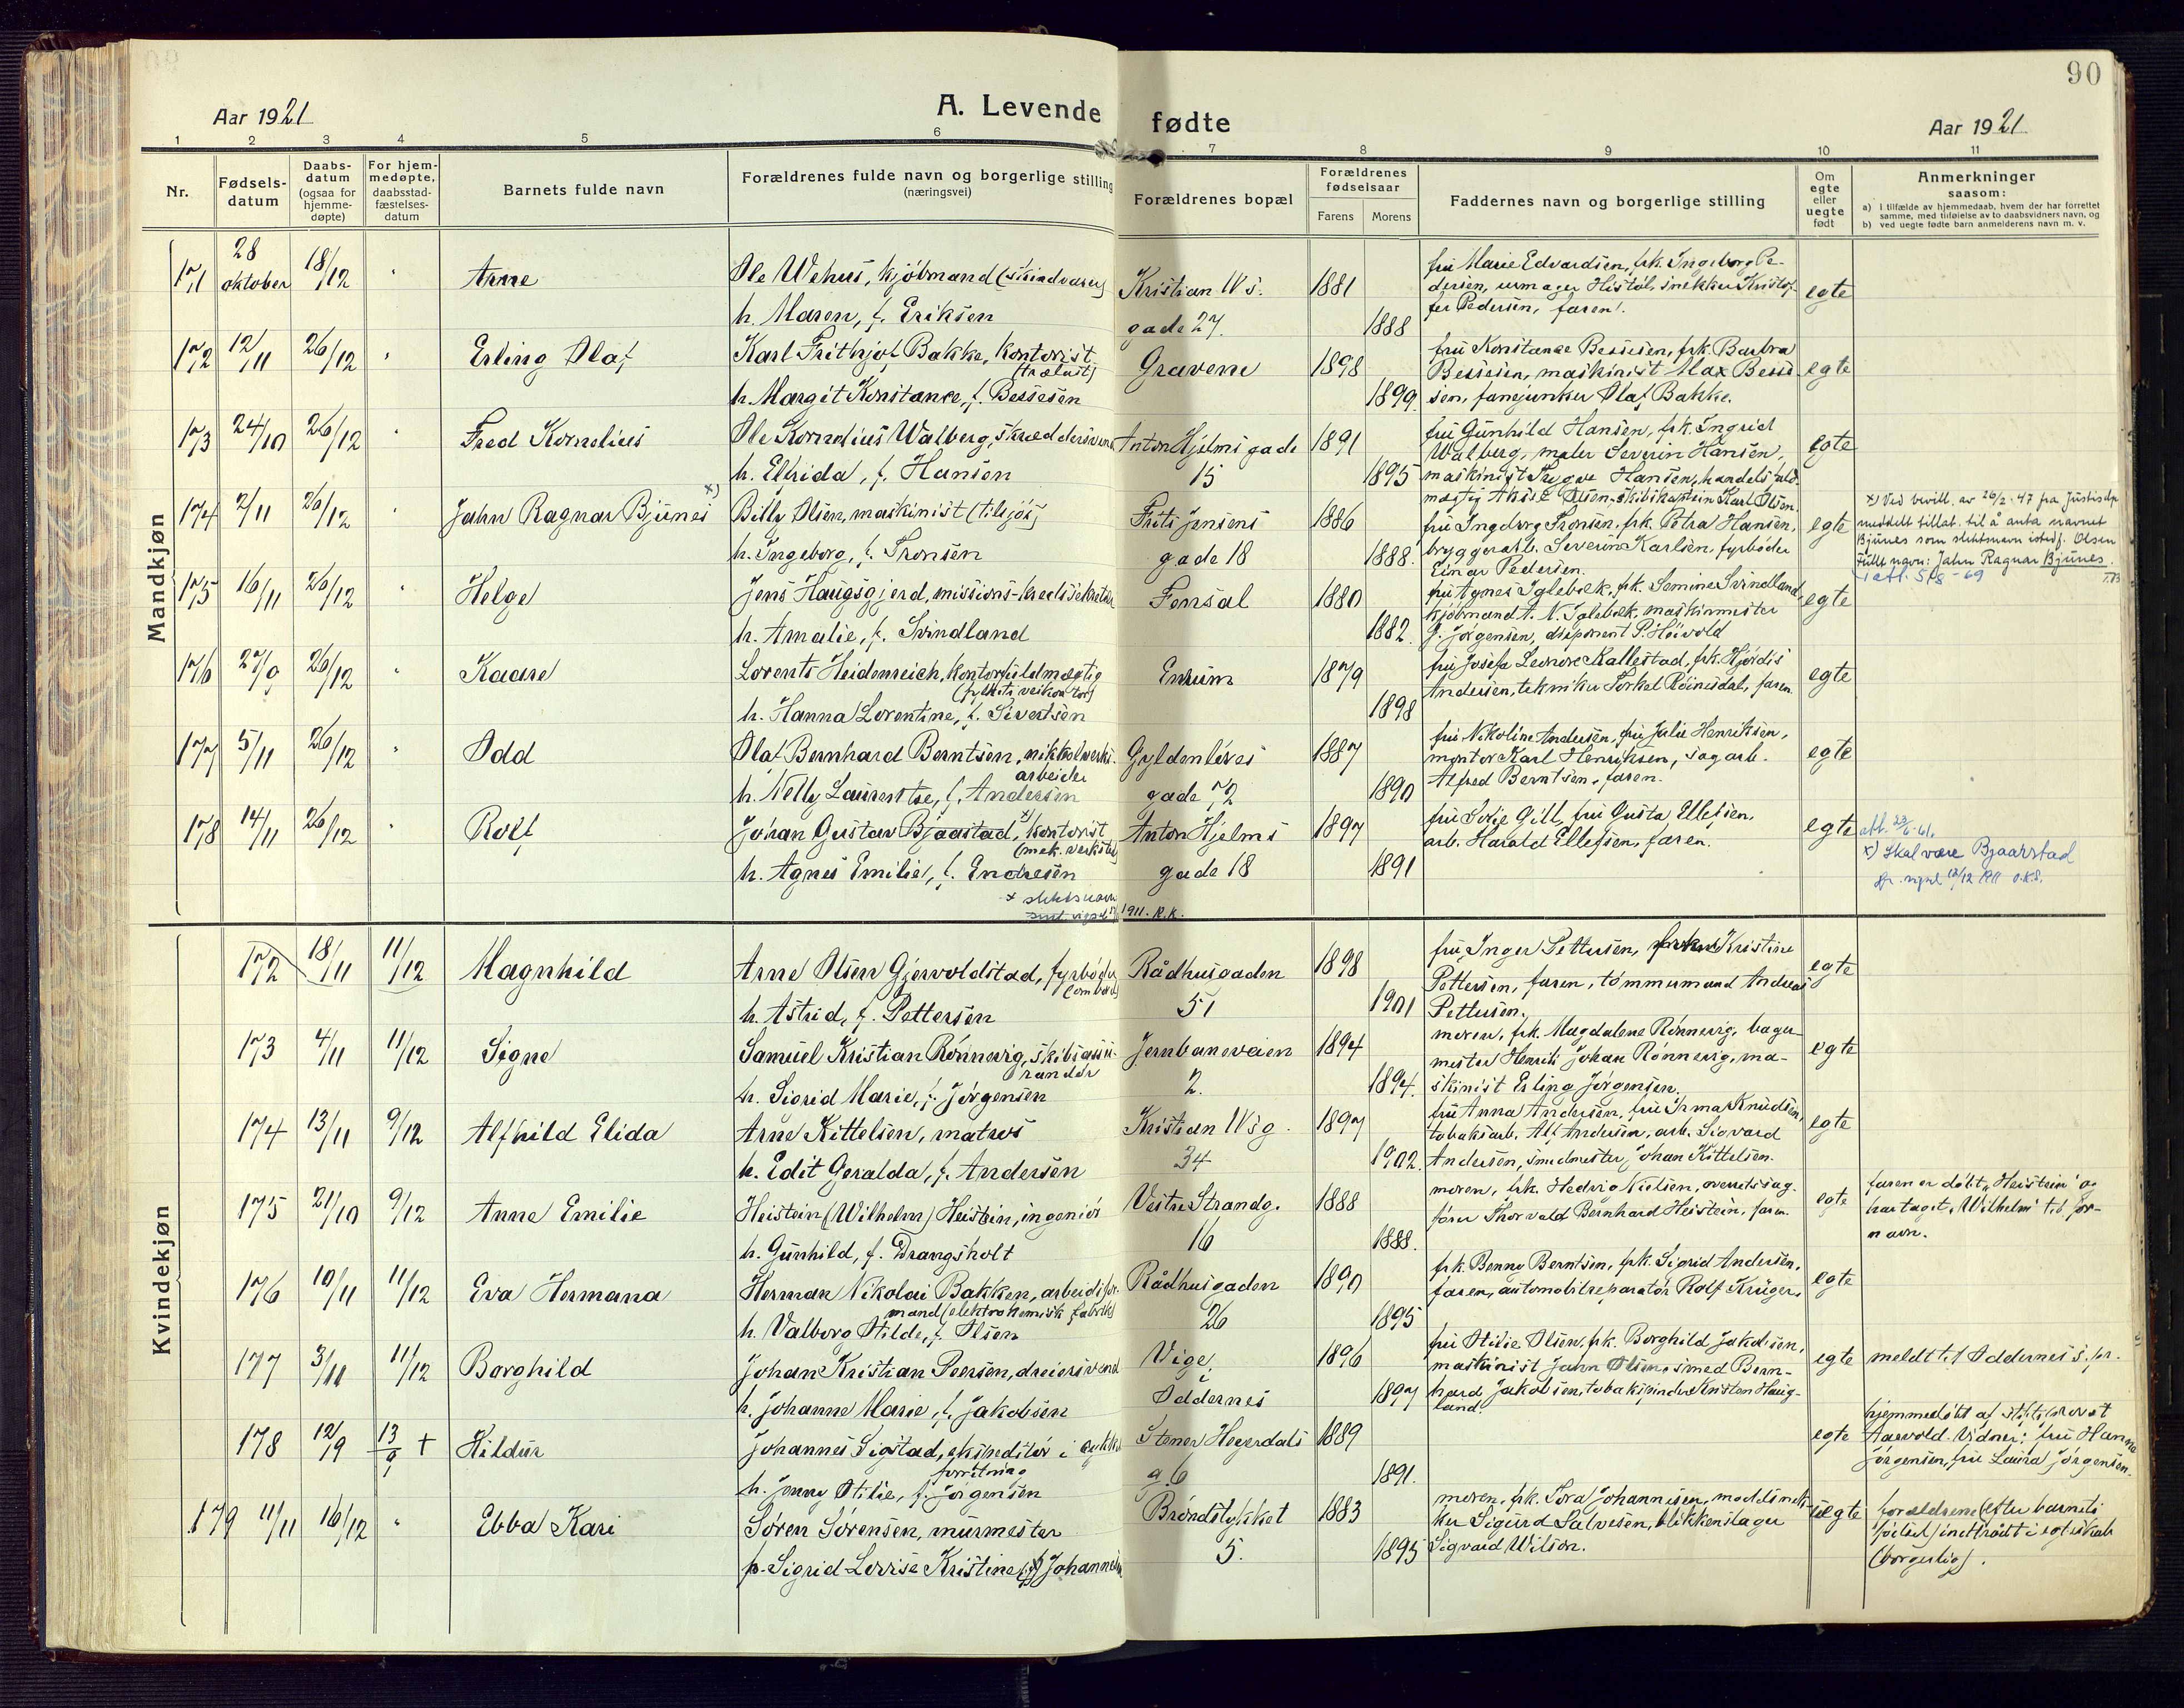 90
Aar 1921
A. Levende fødte
Aar 1921
1 2 3 4 5 6 7 8 9 10 11
Nr.
Fødsels-
datum
Daabs-
datum
(ogsaa for
hjemme-
døpte)
For hjem-
medøpte,
daabsstad-
fæstelses-
datum
Barnets fulde navn
Forældrenes fulde navn og borgerlige stilling
(næringsvei)
Forældrenes bopæl
Forældrenes
fødselsaar
Farens Morens
Faddernes navn og borgerlige stilling
Om
egte
eller
uegte
født
Anmerkninger
saasom:
a) i tilfælde av hjemmedaab, hvem der har forrettet
samme, med tilføielse av to daabsvidners navn, og
b) ved uegte fødte barn anmelderens navn m. v.
Mandkjøn
171 28 oktober 18/12 " Arne
Ole Wehus, kjøbmand (skindvarer)
h. Maren, f. Eriksen
Kristian IVs.
gade 27.
1881
1888
fru Marie Edvardsen, frk. Ingeborg Pe-
dersen, urmager Histøl, snekker Kristof-
fer Pedersen, faren.
egte
172 12/11 26/12 " Erling Olaf
Karl Frithjof Bakke, kontorist
(trælast)
h. Margit Konstance, f. Bessesen
Gravene
1898
1899.
fru Konstance Bessesen, frk. Barbra
Bessesen, maskinist Max Besse
sen, fanejunker Olaf Bakke.
egte
173 24/10 26/12 " Fred Kornelius
Ole Kornelius Walberg, skræddersvend
h. Elfrida, f. Hansen
Anton Hjelms gade
15
1891
1895
fru Gunhild Hansen, frk. Ingrid
Walberg, maler Severin Hansen,
maskinist Trygve Hansen, handelsfuld-
egte
174 2/11 26/12 " Jahn Ragnar Bjunes x)
Billy Olsen, maskinist (tilsjøs)
h. Ingeborg, f. Tronsen
Frits Jensens
gade 18
1886
1888.
mægtig Olsen, skibskaptein Karl Olsen.
fru Ingeborg Tronsen, frk. Petra Hansen,
bryggeriarb. Severin Karlsen, fyrbøder
Einar Pedersen.
egte
x) Ved bevill. av 26/2-47 fra Justisdep
meddelt tillat. til å anta navnet
Bjunes som slektsnavn istedf. Olsen
Fullt navn: Jahn Ragnar Bjunes.
175 16/11 26/12 " Helge
Jens Haugsgjerd, missions-kredssekretær
h. Amalie, f. Svindland
Fonsal
1880
1882.
fru Agnes Iglebæk, frk. Semine Svindland
kjøbmand A. N. Iglebæk, maskinmester
J. Jørgensen, disponent P. Høivold
egte
176 27/9 26/12 " Kaare
Lorents Heidenreich, kontorfuldmægtig
(fylkets veikontor)
h. Hanna Lorentine, f. Sivertsen
Enrum
1879
1898
fru Josefa Leonore Kallestad, frk. Hjørdis
Andersen, tekniker Torkel Røinesdal, faren.
egte
177 5/11 26/12 " Odd
Olaf Bernhard Berntsen, nikkelverks.
arbeider
h. Nelly Laurentse, f. Andersen
Gyldenløves
gade 72
1887
1890
fru Nikoline Andersen, fru Julie Henriksen,
montør Karl Henriksen, sagarb.
Alfred Berntsen, faren.
egte
178 14/11 26/12 " Rolf
Johan Gustav Bjaastad x), kontorist
(mek. verksted)
h. Agnes Emilie, f. Endresen
x slektsnavn
1911. R.K.
Anton Hjelms
gade 18
1897
1891
fru Sofie Gill, fru Gusta Ellefsen,
arb. Harald Ellefsen, faren.
egte
att. 23/6-61.
x) Skal være Bjaarstad
Kvindekjøn
172 18/11 11/12 Magnhild
Arne Olsen Gjervoldstad, fyrbøder
(ombord)
h. Astrid, f. Pettersen
Rådhusgaden
51
1898
1901
fru Inger Pettersen, frøken Kristine
Pettersen, faren, tømmermand Andreas
Pettersen.
egte
173 4/11 11/12 Signe
Samuel Kristian Rønnevig, skibsassu-
randør
h. Sigrid Marie, f. Jørgensen
Jernbaneveien
2.
1894
1894.
moren, frk. Magdalene Rønnevig, bager-
mester Henrik Johan Rønnevig, ma-
skinist Erling Jørgensen.
egte
174 13/11 9/12 Alfhild Elida
Arne Kittelsen, matros
h. Edit Geralda, f. Andersen
Kristian IVs g.
34
1897
1902.
fru Anna Andersen, fru Irma Knudsen,
tobaksarb. Alf Andersen, arb. Sigvard
Andersen, smedmester Johan Kittelsen.
egte
175 21/10 9/12 Anne Emilie
Heistein (Wilhelm) Heistein, ingeniør
h. Gunhild, f. Drangsholt
Vestre Strandg.
16
1888
1888.
moren, frk. Hedvig Nielsen, overretssag-
fører Thorvald Bernhard Heistein, faren.
egte
faren er døbt „Heistein" og
har taget „Wilhelm" til for-
navn.
176 10/11 11/12 Eva Hermana
Herman Nikolai Bakken, arbeidsfor-
mand (elektrokemisk fabrik)
h. Valborg Otilde, f. Olsen
Rådhusgaden
26
1890
1895
frk. Benny Berntsen, frk. Sigrid Andersen,
faren, automobilreparatør Rolf Krüger.
egte
177 3/11 11/12 Borghild
Johan Kristian Peersen, dreiersvend
h. Johanne Marie, f. Jakobsen
Vige,
Oddernes
1896
1897
fru Otilie Olsen, frk. Borghild Jakobsen,
maskinist Jahn Olsen, smed Bern-
hard Jakobsen, tobakspinder Kristen Haug-
land.
egte
meldt til Oddernes s. pr.
178 12/9 13/9 + Hildur
Johannes Sigstad, ekspeditør i
forretning
h. Jenny Otilie, f. Jørgensen
Stener Heyerdals
g. 6
1889
1891.
egte
hjemmedøbt af stiftsprovst
Aarvold. Vidner: fru Hanna
Jørgensen, fru Laura Jørgensen.
179 11/11 16/12 " Ebba Kari
Søren Sørensen, murmester
p. Sigrid Lovise Kristine Johannesen
Brøndstykket
5.
1883
1895
moren, frk. Tora Johannesen,
ker Sigurd Salvesen, blikkenslager
Sigvard Wilson.
uegte
forældrene (efter barnets
fødsel) indtrådt i egteskab
(borgerlig).